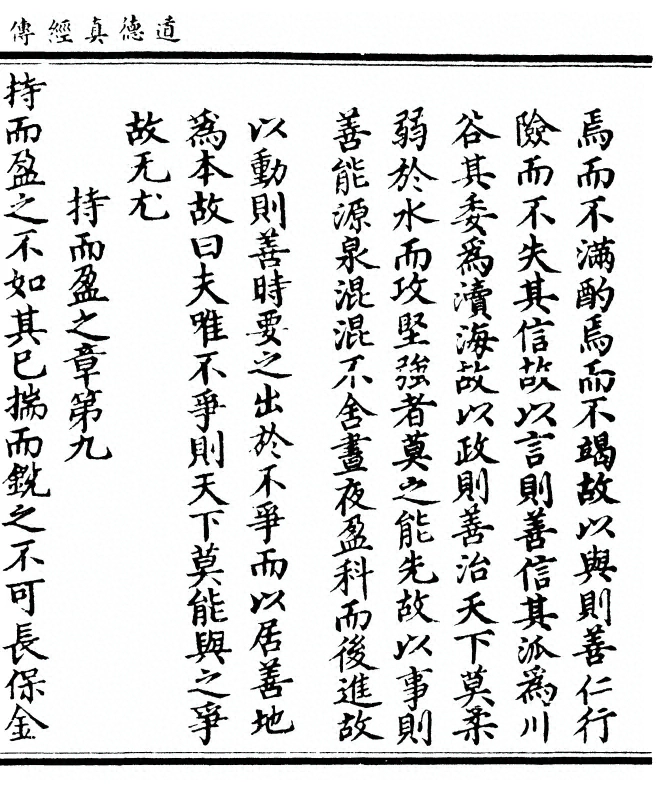 道德真經傳
焉而不滿酌焉而不竭故以與則善仁行
險而不失其信故以言則善信其派爲川
谷其委爲瀆海故以政則善治天下莫柔
弱於水而攻堅強者莫之能先故以事則
善能源泉混混不舍晝夜盈科而後進故
以動則善時要之出於不爭而以居善地
爲本故曰夫唯不爭則天下莫能與之爭
故无尤
持而盈之章第九
持而盈之不如其已揣而銳之不可長保金